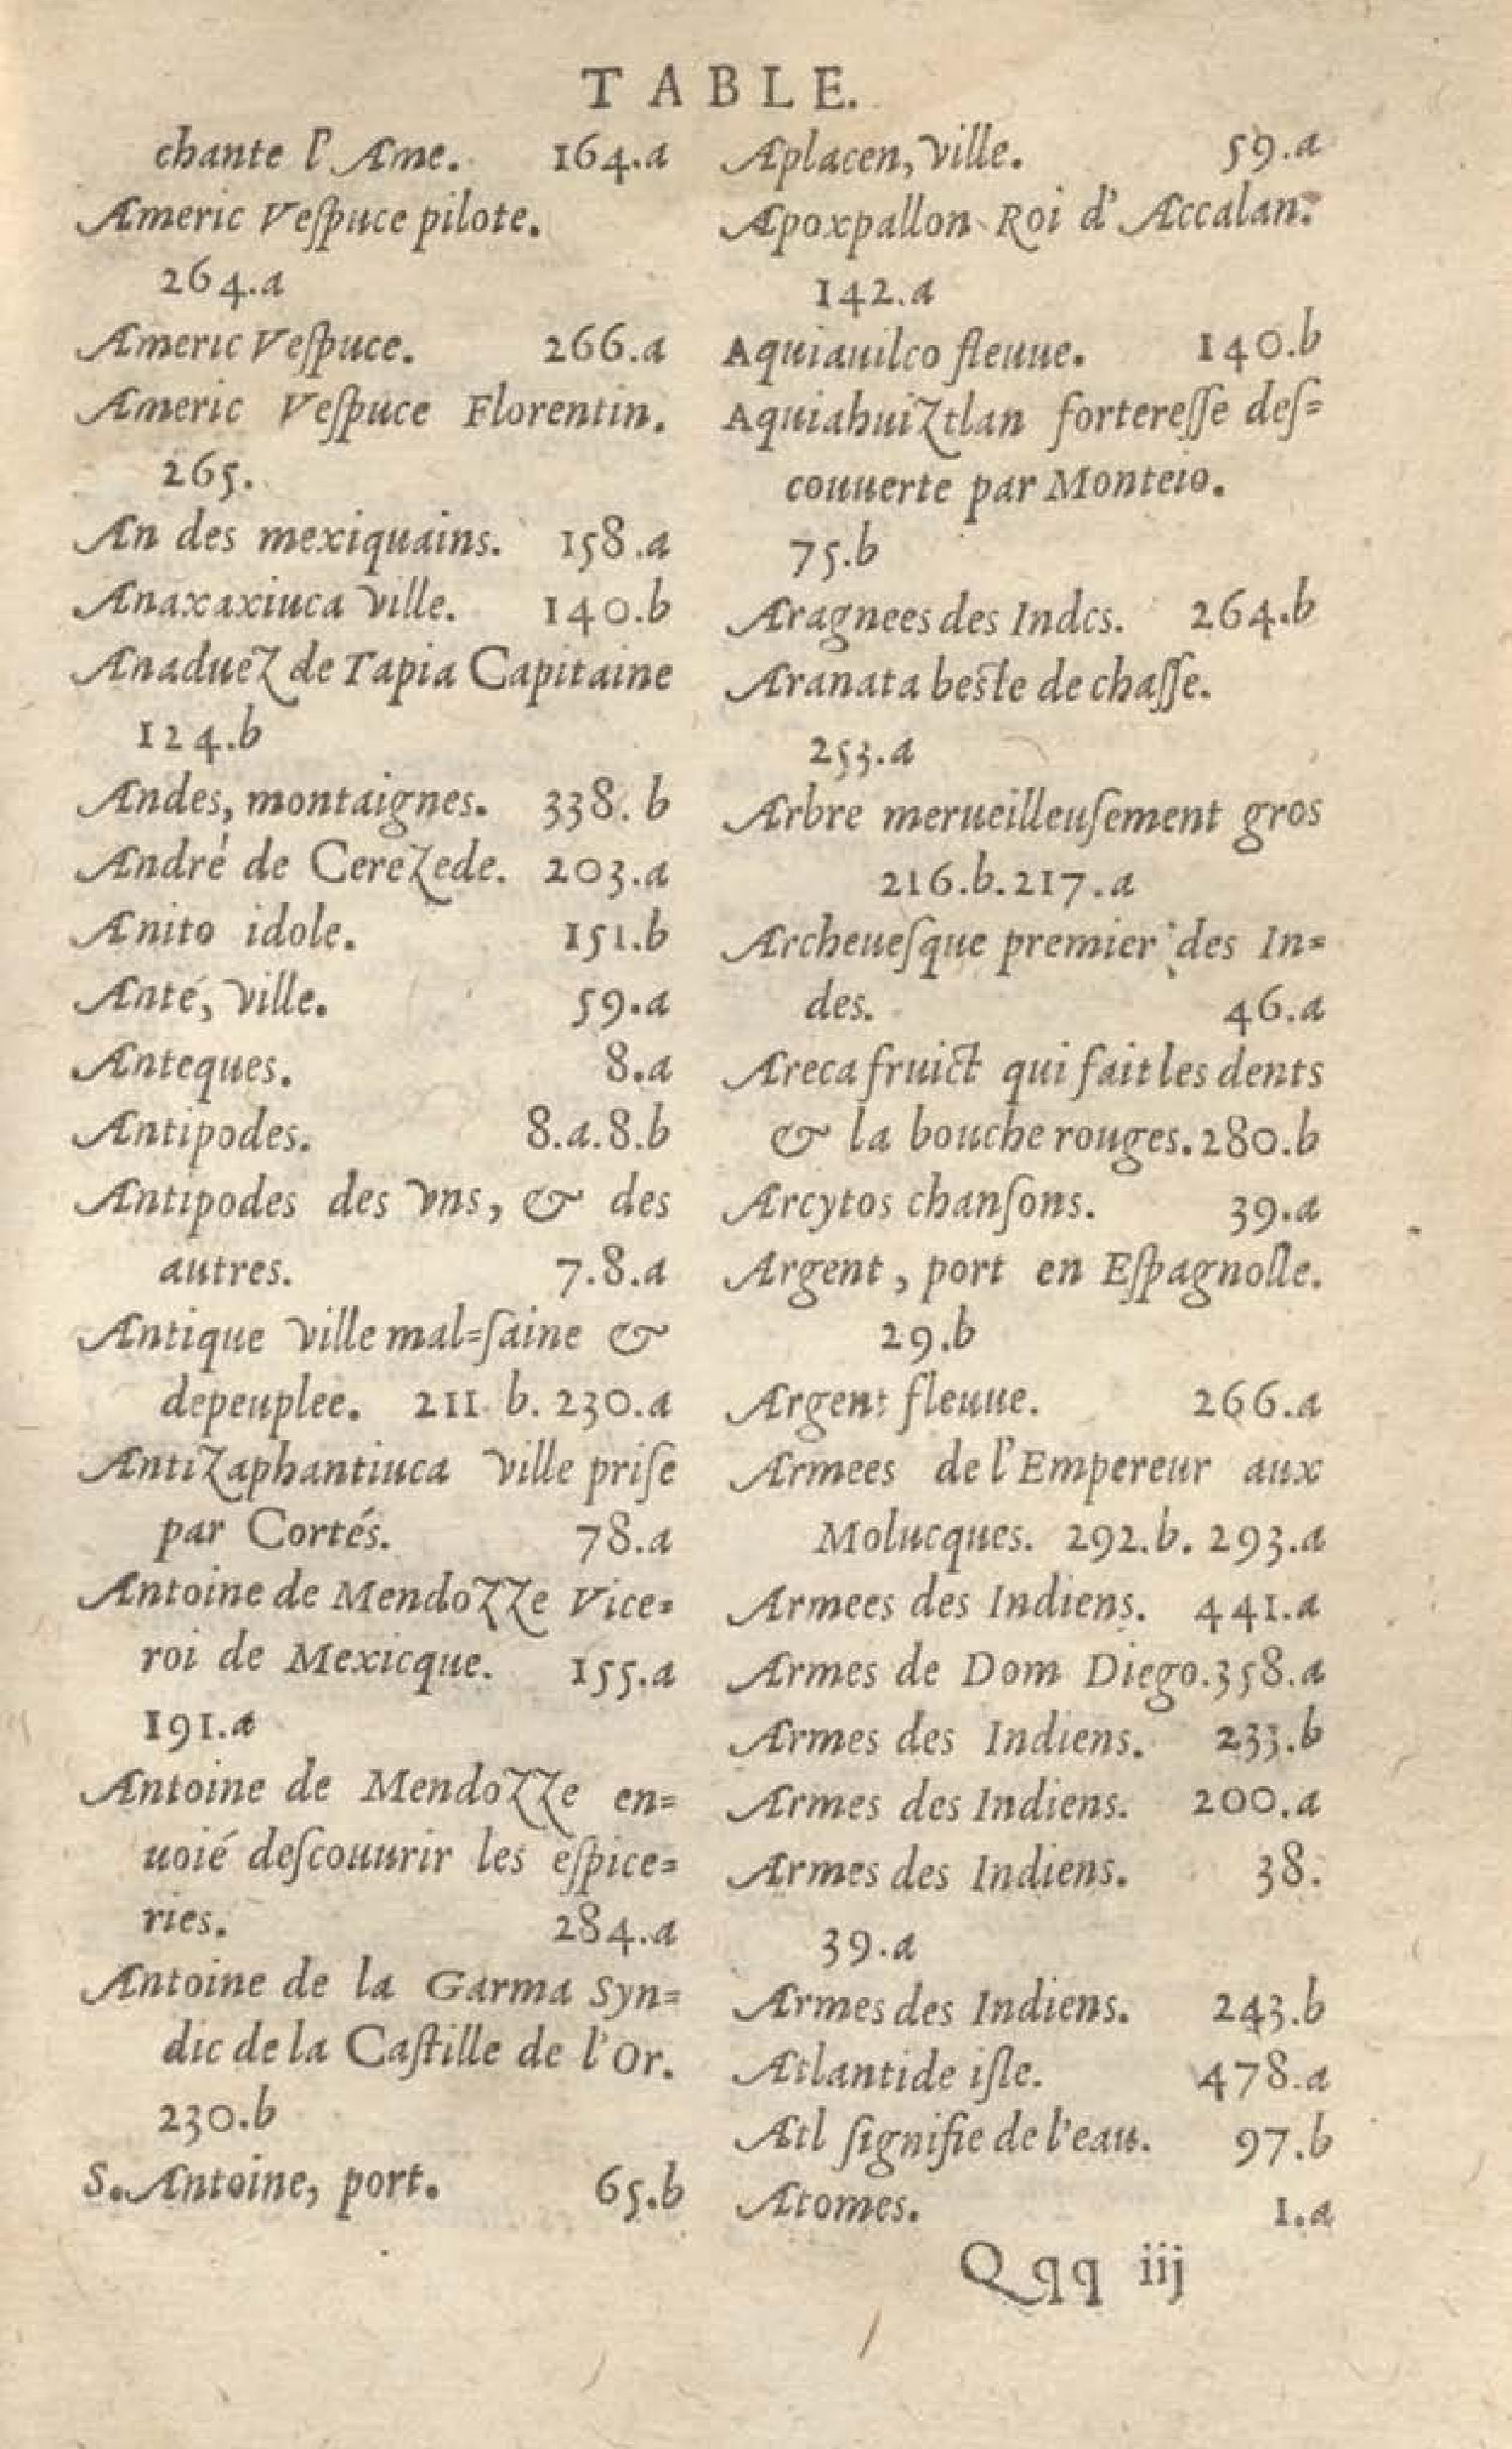 TABLE.
chante l'Ame. 164.a
Americ Veſpuce pilote.
264.a
Americ Veſpuce. 266.a
Americ Veſpuce Florentin.
265.
An des mexiquains. 158.a
Anaxaxiuca ville. 140.b
Anaduez de Tapia Capitaine
124.b
Andes, montaignes. 338. b
André de Cerezede. 203.a
Anito idole. 151.b
Anté, ville. 59.a
Anteques. 8.a
Antipodes. 8.a.8.b
Antipodes des vns, & des
autres. 7.8.a
Antique ville mal=ſaine &
depeuplee. 211. b. 230.a
Antizaphantiuca ville priſe
par Cortés. 78.a
Antoine de Mendozze Vice=
roi de Mexicque. 155.a
191.a
Antoine de Mendozze en=
uoié deſcouurir les eſpice=
ries. 284.a
Antoine de la Garma Syn=
dic de la Caſtille de l'Or.
230.b
S. Antoine, port. 65.b
Aplacen, ville. 59.a
Apoxpallon Roi d'Accalan.
142.a
Aquiauilco fleuue. 140.b
Aquiahuiztlan fortereſſe deſ=
couuerte par Monteio.
75.b
Aragnees des Indes. 264.b
Aranata beſte de chaſſe.
253.a
Arbre merueilleuſement gros
216.b.217.a
Archeueſque premier des In=
des. 46.a
Areca fruict qui fait les dents
& la bouche rouges. 280.b
Arcytos chanſons. 39.a
Argent, port en Eſpagnolle.
29.b
Argent fleuue. 266.a
Armees de l'Empereur aux
Molucques. 292.b. 293.a
Armees des Indiens. 441.a
Armes de Dom Diego. 358.a
Armes des Indiens. 233.b
Armes des Indiens. 200.a
Armes des Indiens. 38.
39.a
Armes des Indiens. 243.b
Atlantide iſle. 478.a
Atl ſignifie de l'eau. 97.b
Atomes. 1.a
Qqq iij